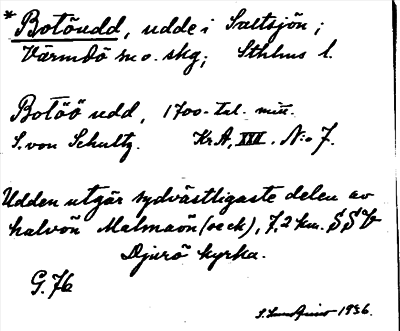 * Botöudd, udde i Saltsjön;
Värmdö sn o. skg; Sthlms l.
Botöö udd, 1700-tal. mitt.
S. von Schultz. Kr.A, XXII. N:o 7.
Udden utgär sydvästligaste delen av
halvön Malmaön (ovek), 7,2 km. SSV
Djurö kyrka.
G. 76
1936.